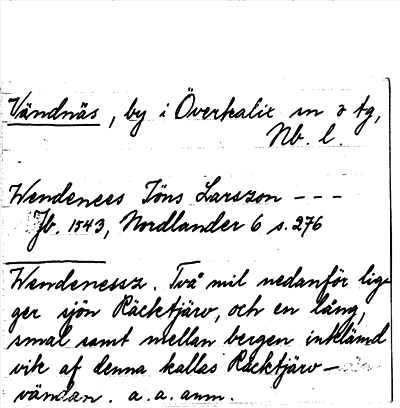 Vändnäs, by i Överkalix sn o tg,
Nb. l.
Wendenees Jöns Larszon - - -
Jb. 1543, Nordlander 6 s. 276
Wendenessz. Två mil nedanför lig-
ger sjön Räcktjärv, och en lång,
smal samt mellan bergen inklämd
vik af denna kallas Räcktjärv-
vändan. a. a. anm.